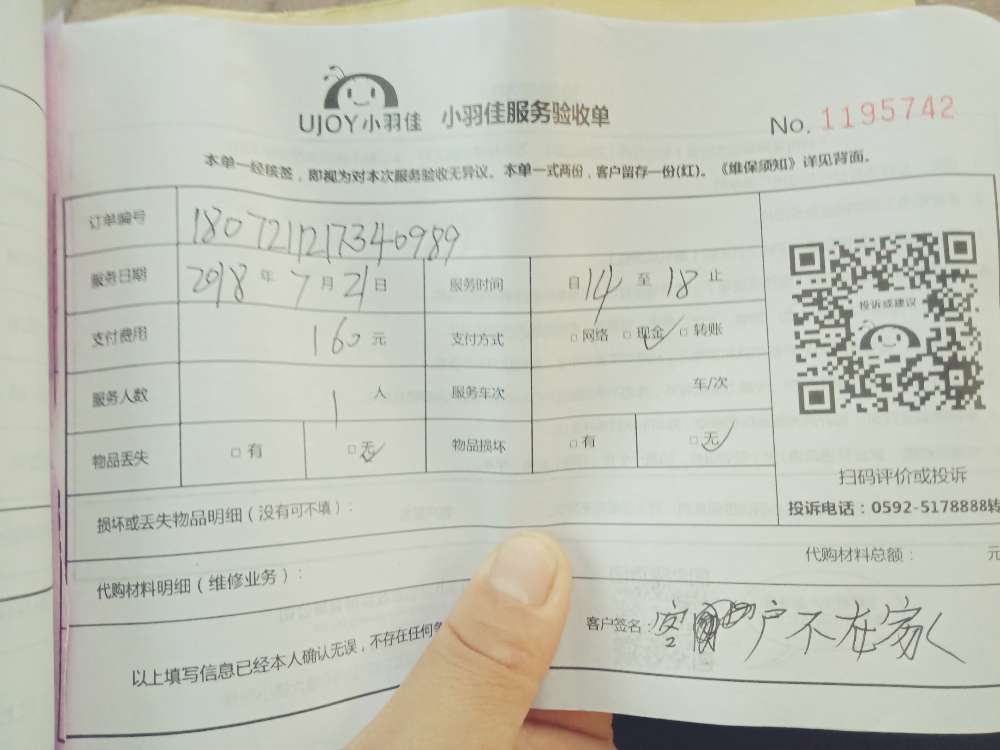 UJOY小羽佳 小羽佳服务验收单
No. 1195742
本单一经核签，即视为对本次服务验收无异议。本单一式两份，客户留存一份(红)。《维保须知》详见背面。
订单编号 180721121734​0989
服务日期 2018 年 7 月 21 日 服务时间 自 14 至 18 止
支付费用 160 元 支付方式 □网络 □现金 ✓ □转账
服务人数 1 人 服务车次 车/次
物品丢失 □有 □无 ✓ 物品损坏 □有 □无 ✓
投诉或建议
扫码评价或投诉
投诉电话：0592-5178888转
损坏或丢失物品明细（没有可不填）：
代购材料明细（维修业务）： 代购材料总额： 元
以上填写信息已经本人确认无误，不存在任何
客户签名： 户不在家